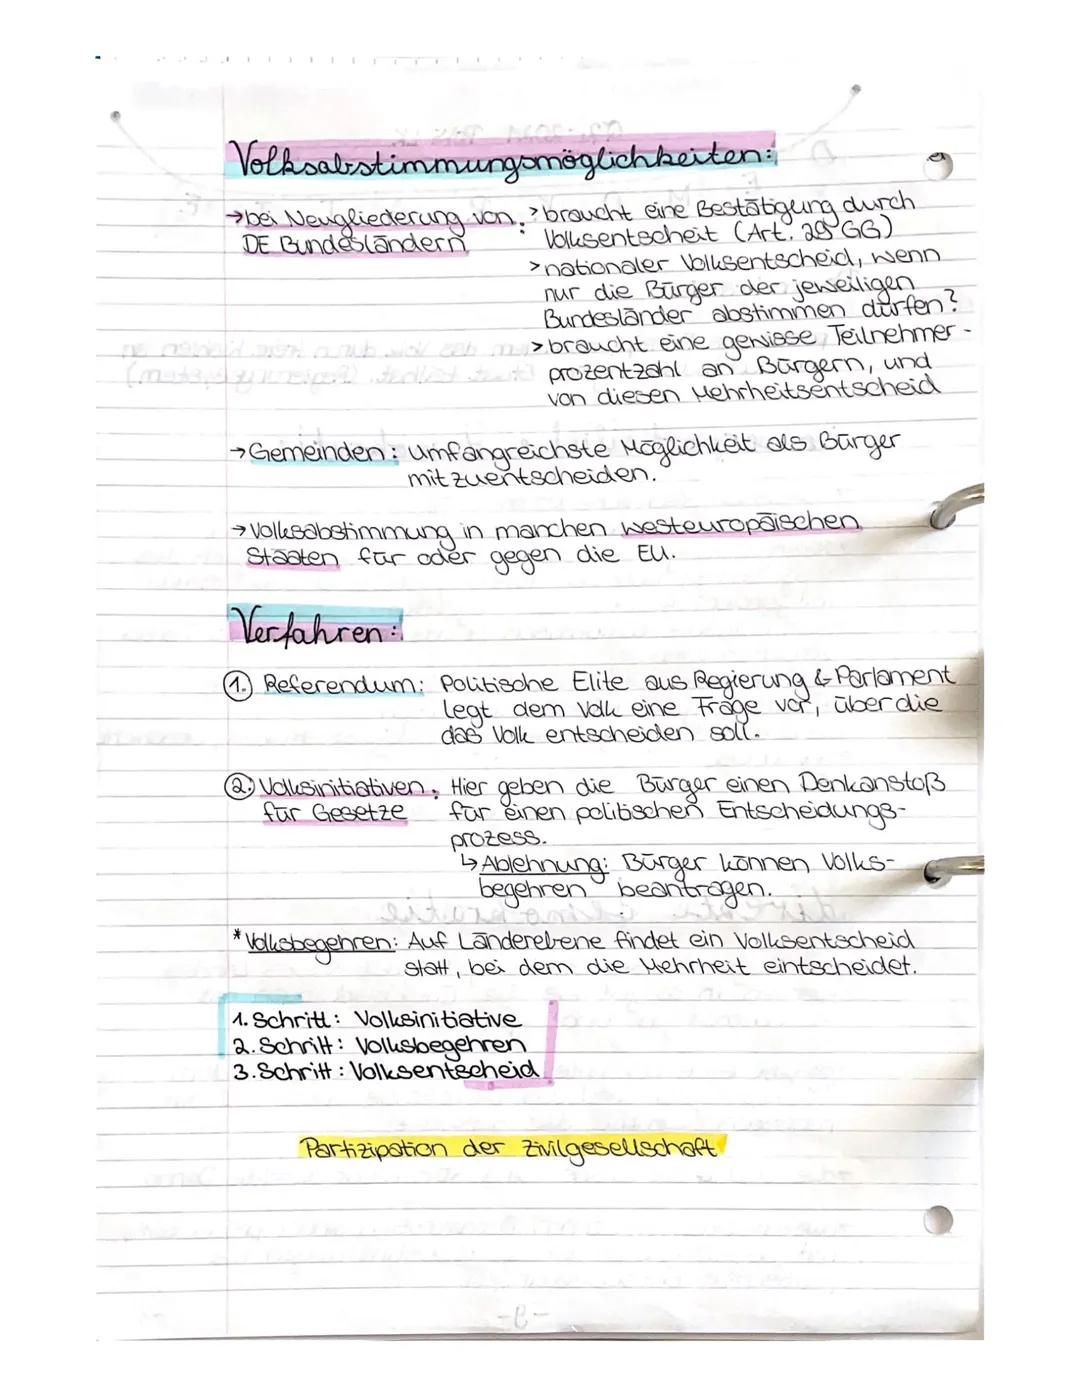 Volksabstimmungsmöglichkeiten:
→bei Neugliederung von : >braucht eine Bestätigung durch
DE Bundesländern Volksentscheit (Art. 29 GG)
>nationaler Volksentscheid, wenn
nur die Bürger der jeweiligen
Bundesländer abstimmen dürfen?
>braucht eine gewisse Teilnehmer-
prozentzahl an Bürgern, und
von diesen Mehrheitsentscheid
→Gemeinden: Umfangreichste Möglichkeit als Bürger
mitzuentscheiden.
→Volksabstimmung in manchen westeuropäischen
Staaten für oder gegen die EU.
Verfahren:
1. Referendum: Politische Elite aus Regierung & Parlament
legt dem Volk eine Frage vor, über die
das Volk entscheiden soll.
2. Volksinitiativen : Hier geben die Bürger einen Denkanstoß
für Gesetze für einen politischen Entscheidungs-
prozess.
↳Ablehnung: Bürger können Volks-
begehren beantragen.
*Volksbegehren: Auf Länderebene findet ein Volksentscheid
statt, bei dem die Mehrheit eintscheidet.
1. Schritt: Volksinitiative
2. Schritt: Volksbegehren
3. Schritt: Volksentscheid
Partizipation der Zivilgesellschaft